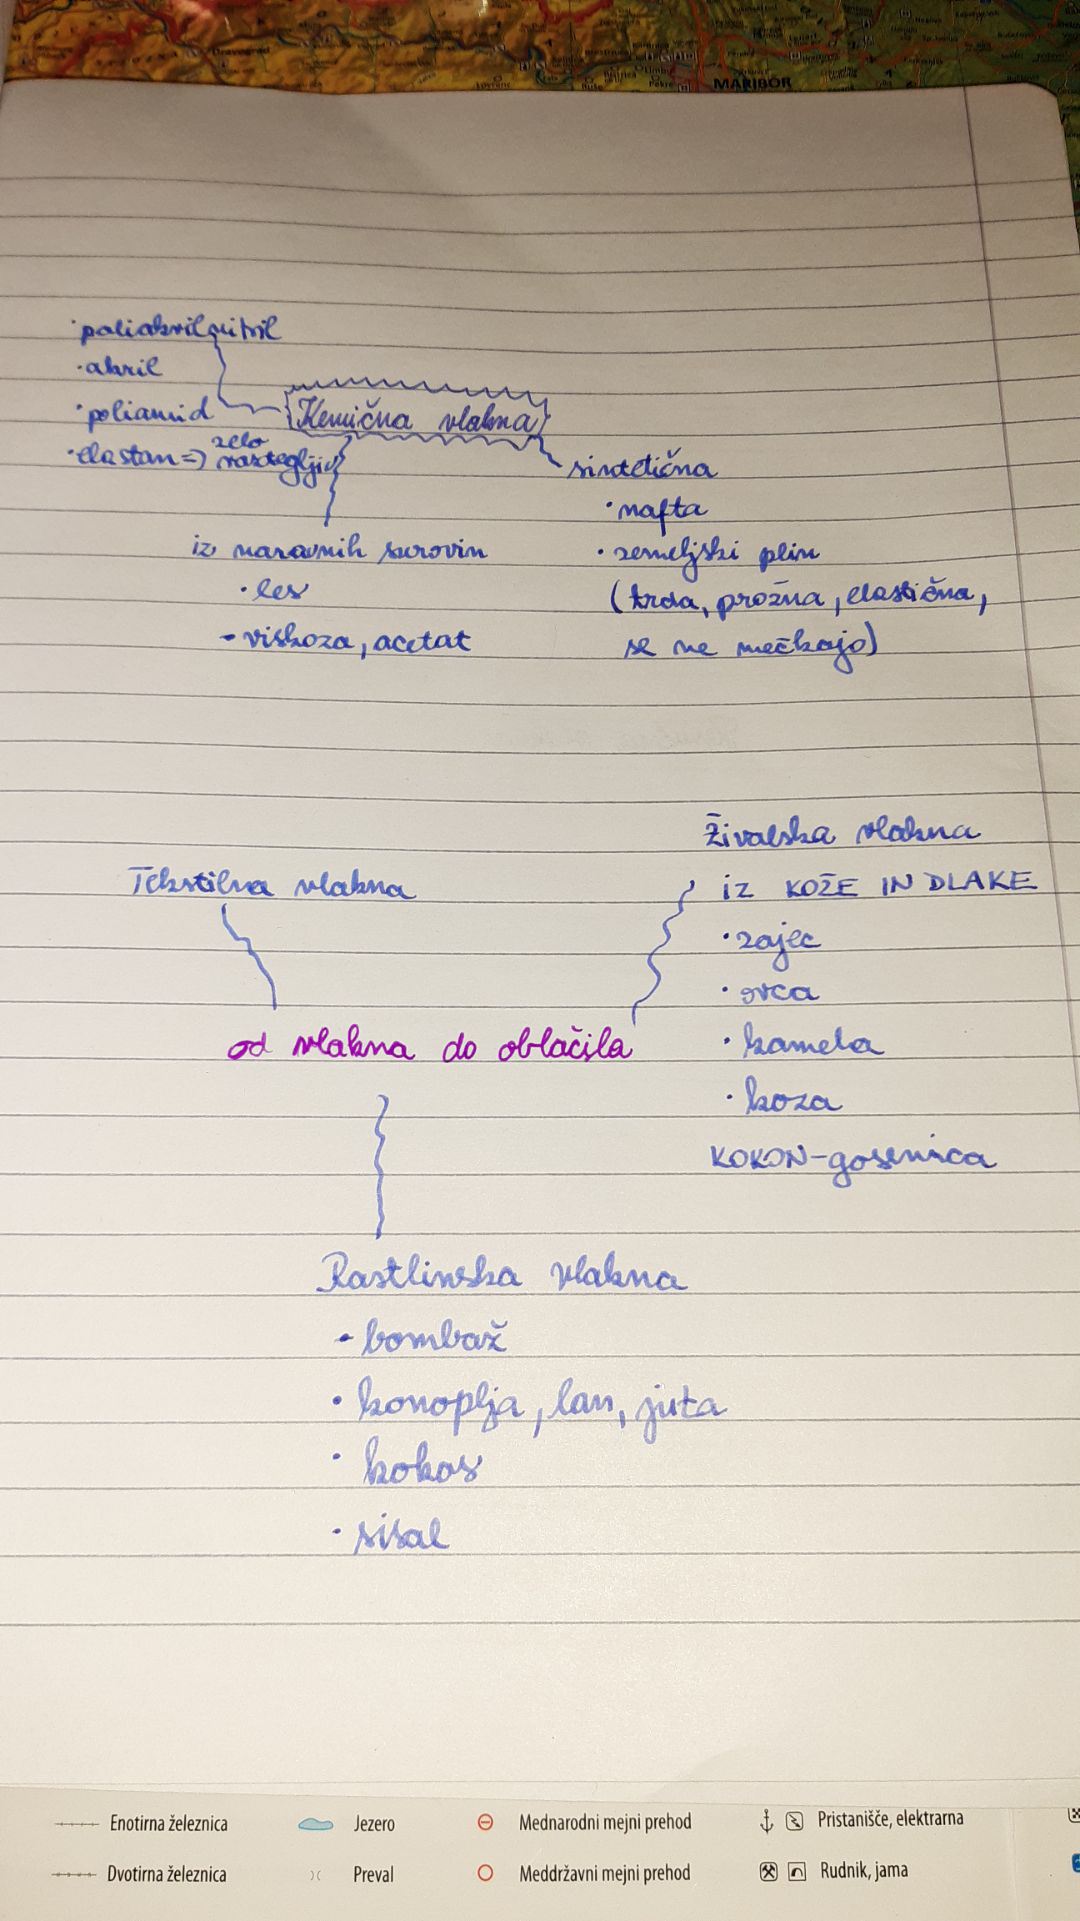 MARIBOR
• poliakrilnitril
• akril
• poliamid
• elastan => zelo raztegljiv
Kemična vlakna
sintetična
• nafta
• zemeljski plin
(trda, prožna, elastična,
se ne mečkajo)
iz naravnih surovin
• les
- viskoza, acetat
Tekstilna vlakna
Živalska vlakna
iz KOŽE IN DLAKE
• zajec
• ovca
• kamela
• koza
KOKON-gosenica
od vlakna do oblačila
Rastlinska vlakna
• bombaž
• konoplja, lan, juta
• kokos
• sisal
Enotirna železnica
Jezero
Mednarodni mejni prehod
Pristanišče, elektrarna
Dvotirna železnica
Preval
Meddržavni mejni prehod
Rudnik, jama